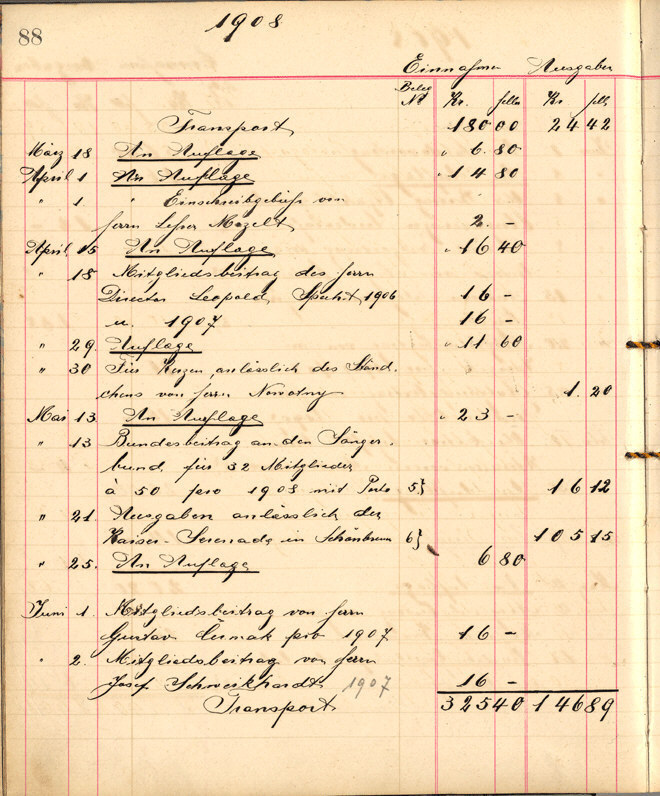 88
1908
Einnahmen Ausgaben
Beleg
Nº Kr. fella Kr. fell.
Transport 180 00 24 42
März 18 An Auflage " 6 80
April 1 An Auflage " 14 80
" 1. " Einschreibgebühr von
Herrn Lehrer 2 -
April 15 An Auflage " 16 40
" 18 Mitgliedsbeitrag des Herrn
Director Leopold 1906 16 -
u. 1907 16 -
" 29. Auflage " 11 60
" 30 Für Kerzen anlässlich des Ständ-
chens von Herrn Nowotny 1. 20
Mai 13. An Auflage " 23 -
" 13 Bundesbeitrag an den Sänger-
bund für 32 Mitglieder
à 50 pro 1908 mit Porto 5} 16 12
" 21 Ausgaben anlässlich der
Kaiser-Serenade in Schönbrunn 6} 105 15
" 25. An Auflage 6 80
Juni 1. Mitgliedsbeitrag von Herrn
Gustav Čermak pro 1907 16 -
" 2. Mitgliedsbeitrag von Herrn
Josef Schweikhardt 1907 16 -
Transport 325 40 146 89